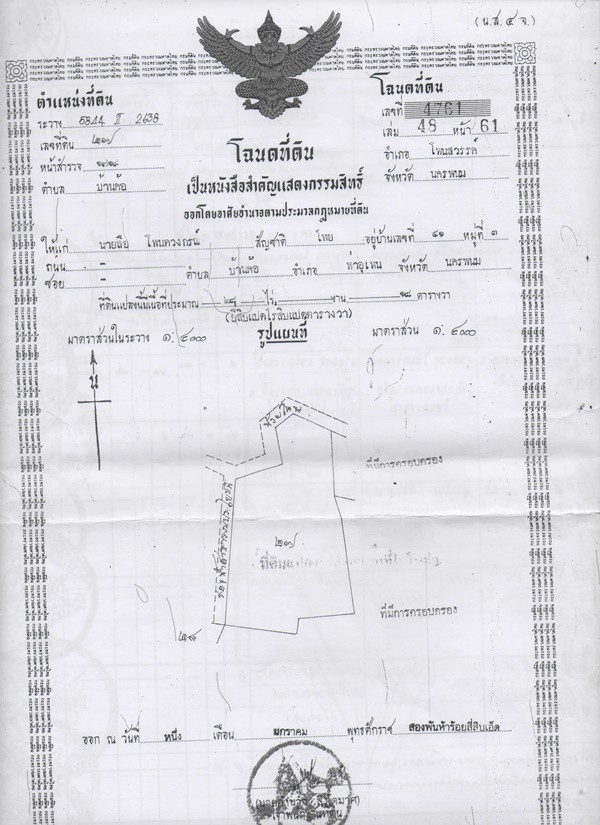 (น.ส. ๔ จ.)
ตำแหน่งที่ดิน
ระวาง 5844 II 2638
เลขที่ดิน ๒๑๗
หน้าสำรวจ
ตำบล บ้านค้อ
โฉนดที่ดิน
เลขที่ 4761
เล่ม 48 หน้า 61
อำเภอ โพนสวรรค์
จังหวัด นครพนม
โฉนดที่ดิน
เป็นหนังสือสำคัญแสดงกรรมสิทธิ์
ออกโดยอาศัยอำนาจตามประมวลกฎหมายที่ดิน
ให้แก่ นายลือ โพนดวงกรณ์ สัญชาติ ไทย อยู่บ้านเลขที่ ๔๑ หมู่ที่ ๓
ถนน - ตำบล บ้านค้อ อำเภอ ท่าอุเทน จังหวัด นครพนม
ซอย -
ที่ดินแปลงนี้มีเนื้อที่ประมาณ ๒๘ ไร่ - งาน ๑๘ ตารางวา
(ยี่สิบแปดไร่สิบแปดตารางวา)
มาตราส่วนในระวาง ๑: ๔๐๐๐ รูปแผนที่ มาตราส่วน ๑: ๔๐๐๐
น
ที่มีการครอบครอง
๒๑๗
ที่มีการครอบครอง
๒๘
ออก ณ วันที่ หนึ่ง เดือน มกราคม พุทธศักราช สองพันห้าร้อยสี่สิบเอ็ด